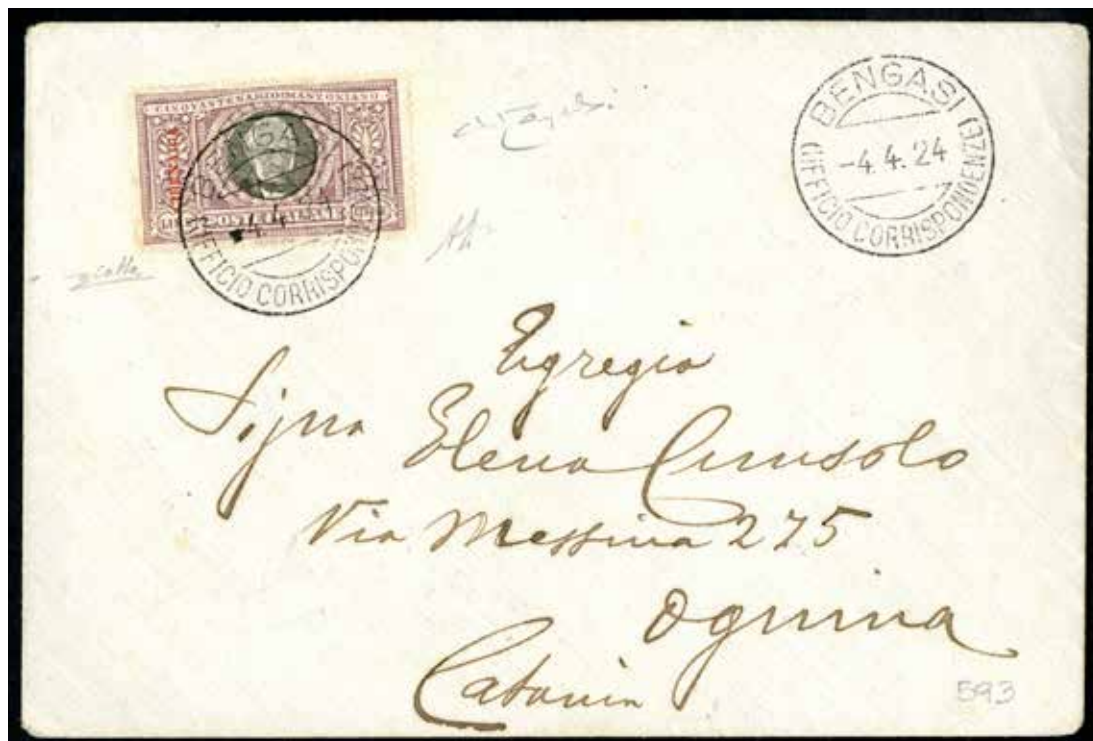 CINQVANTENARIO MANZONIANO
POSTE
BENGASI
-4.4.24
(UFFICIO CORRISPONDENZE)
BENGASI
-4.4.24
(UFFICIO CORRISPONDENZE)
Egregia
Sig.na Elena Cunsolo
Via Messina 275
Ognina
Catania
593